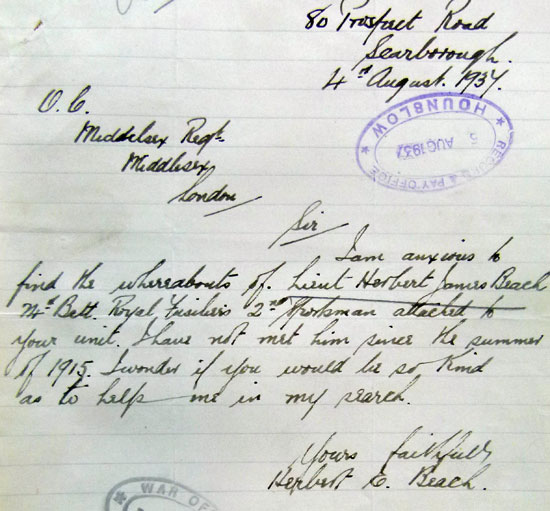 80 Prospect Road
Scarborough.
4th August. 1937.
O.C.
Middelsex Regt.
Middlesex
London
HOUNSLOW
5 AUG 1937
RECORD & PAY OFFICE
Sir
I am anxious to
find the whereabouts of. Lieut Herbert James Beach
24th Batt. Royal Fusiliers 2nd Sportsman attached to
your unit. I have not met him since the summer
of 1915. I wonder if you would be so kind
as to help me in my search.
Yours faithfully
Herbert E. Beach.
WAR OF